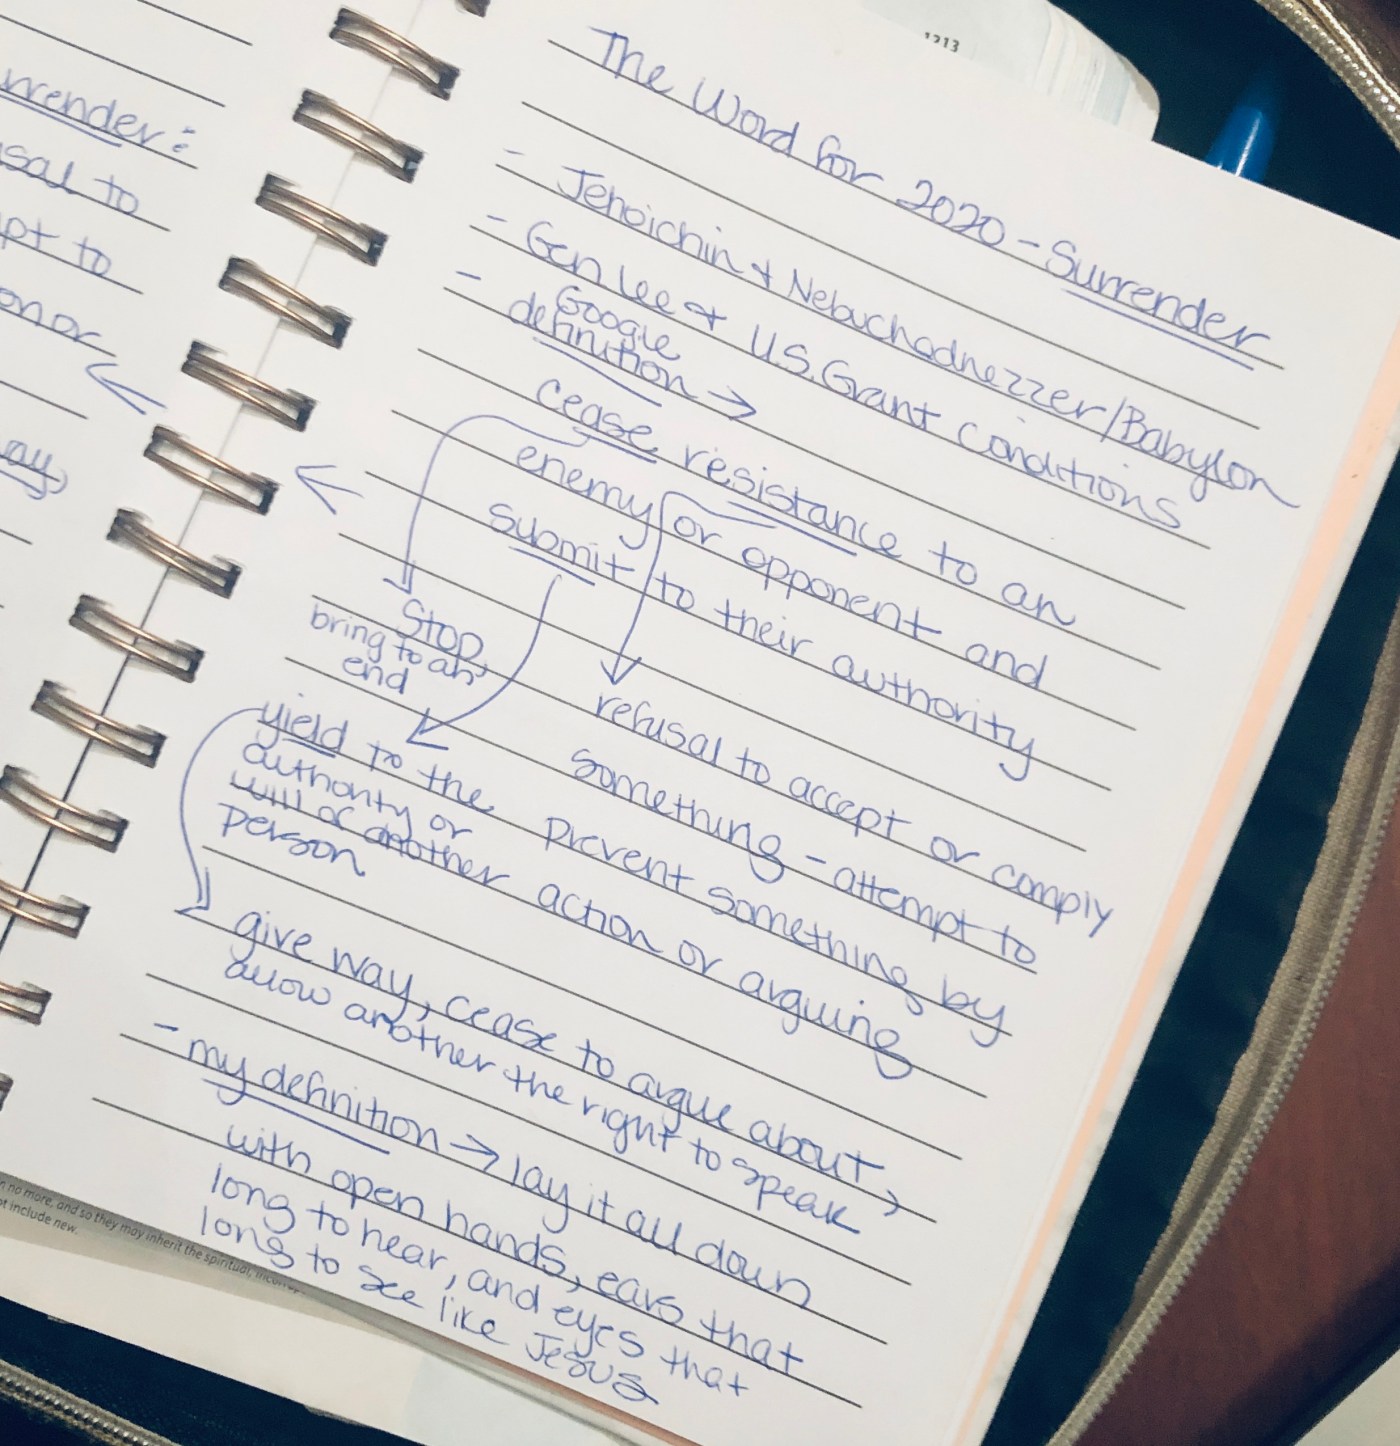 The Word for 2020 - Surrender
- Jehoichin + Nebuchadnezzer/Babylon
- Gen Lee + U.S. Grant conditions
- Google
definition →
cease resistance to an
enemy or opponent and
submit to their authority
Stop,
bring to an
end
refusal to accept or comply
something - attempt to
prevent something by
action or arguing
yield to the
authority or
will of another
person
give way, cease to argue about,
allow another the right to speak
- my definition → lay it all down
with open hands, ears that
long to hear, and eyes that
long to see like Jesus
rrender:
sal to
pt to
on or
ay,
1213
in no more, and so they may inherit the spiritual,
ot include new.